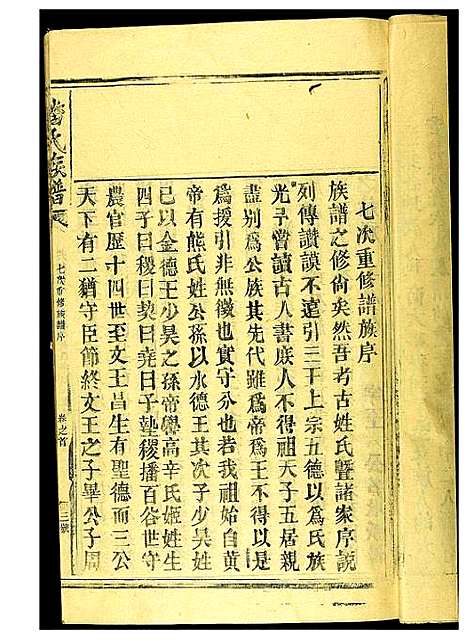 七次重修譜族序
族譜之修尙矣然吾考古姓氏曁諸家序說
列傳讚謨不遠引三干上宗五德以爲氏族
光予嘗讀古人書庶人不得祖天子五居親
盡别爲公族其先代雖爲帝爲王不得以是
爲援引非無徵也實守分也若我祖始自黄
帝有熊氏姓公孫以水德王其次子少昊姓
巳以金德王少昊之孫帝嚳高辛氏姬姓生
四子曰稷曰契曰堯曰予摯稷播百谷世守
農官歷十四世至文王昌生有聖德而三公
天下有二猶守臣節終文王之子畢公子周
氏族譜
七次重修族譜序
卷之首
三號